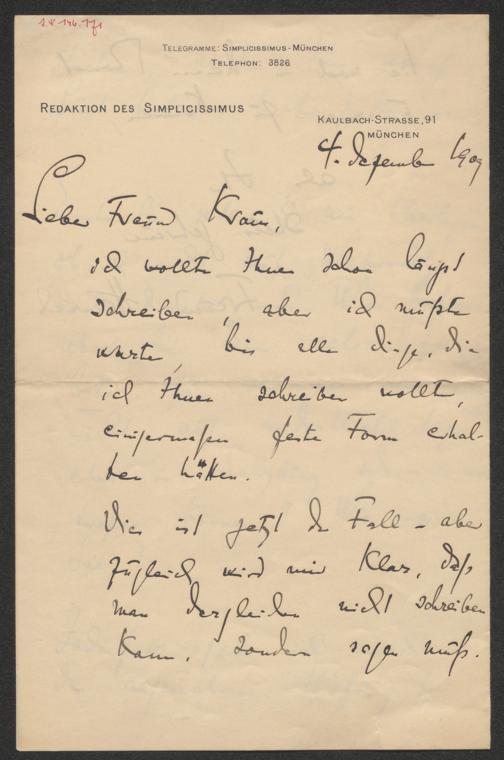 Telegramme: Simplicissimus-München
Telephon: 3826
Redaktion des Simplicissimus
Kaulbach-Strasse, 91
München
4. Dezember 1909
Lieber Freund
ich wollte Ihnen schon längst
schreiben, aber ich mußte
warten, bis alle Dinge, die
ich Ihnen schreiben wollte,
einigermaßen feste Form erhal-
ten hätten.
Dies ist jetzt der Fall – aber
zugleich wird mir Klar, daß
man dergleichen nicht schreiben
Kann, sondern sagen muß.